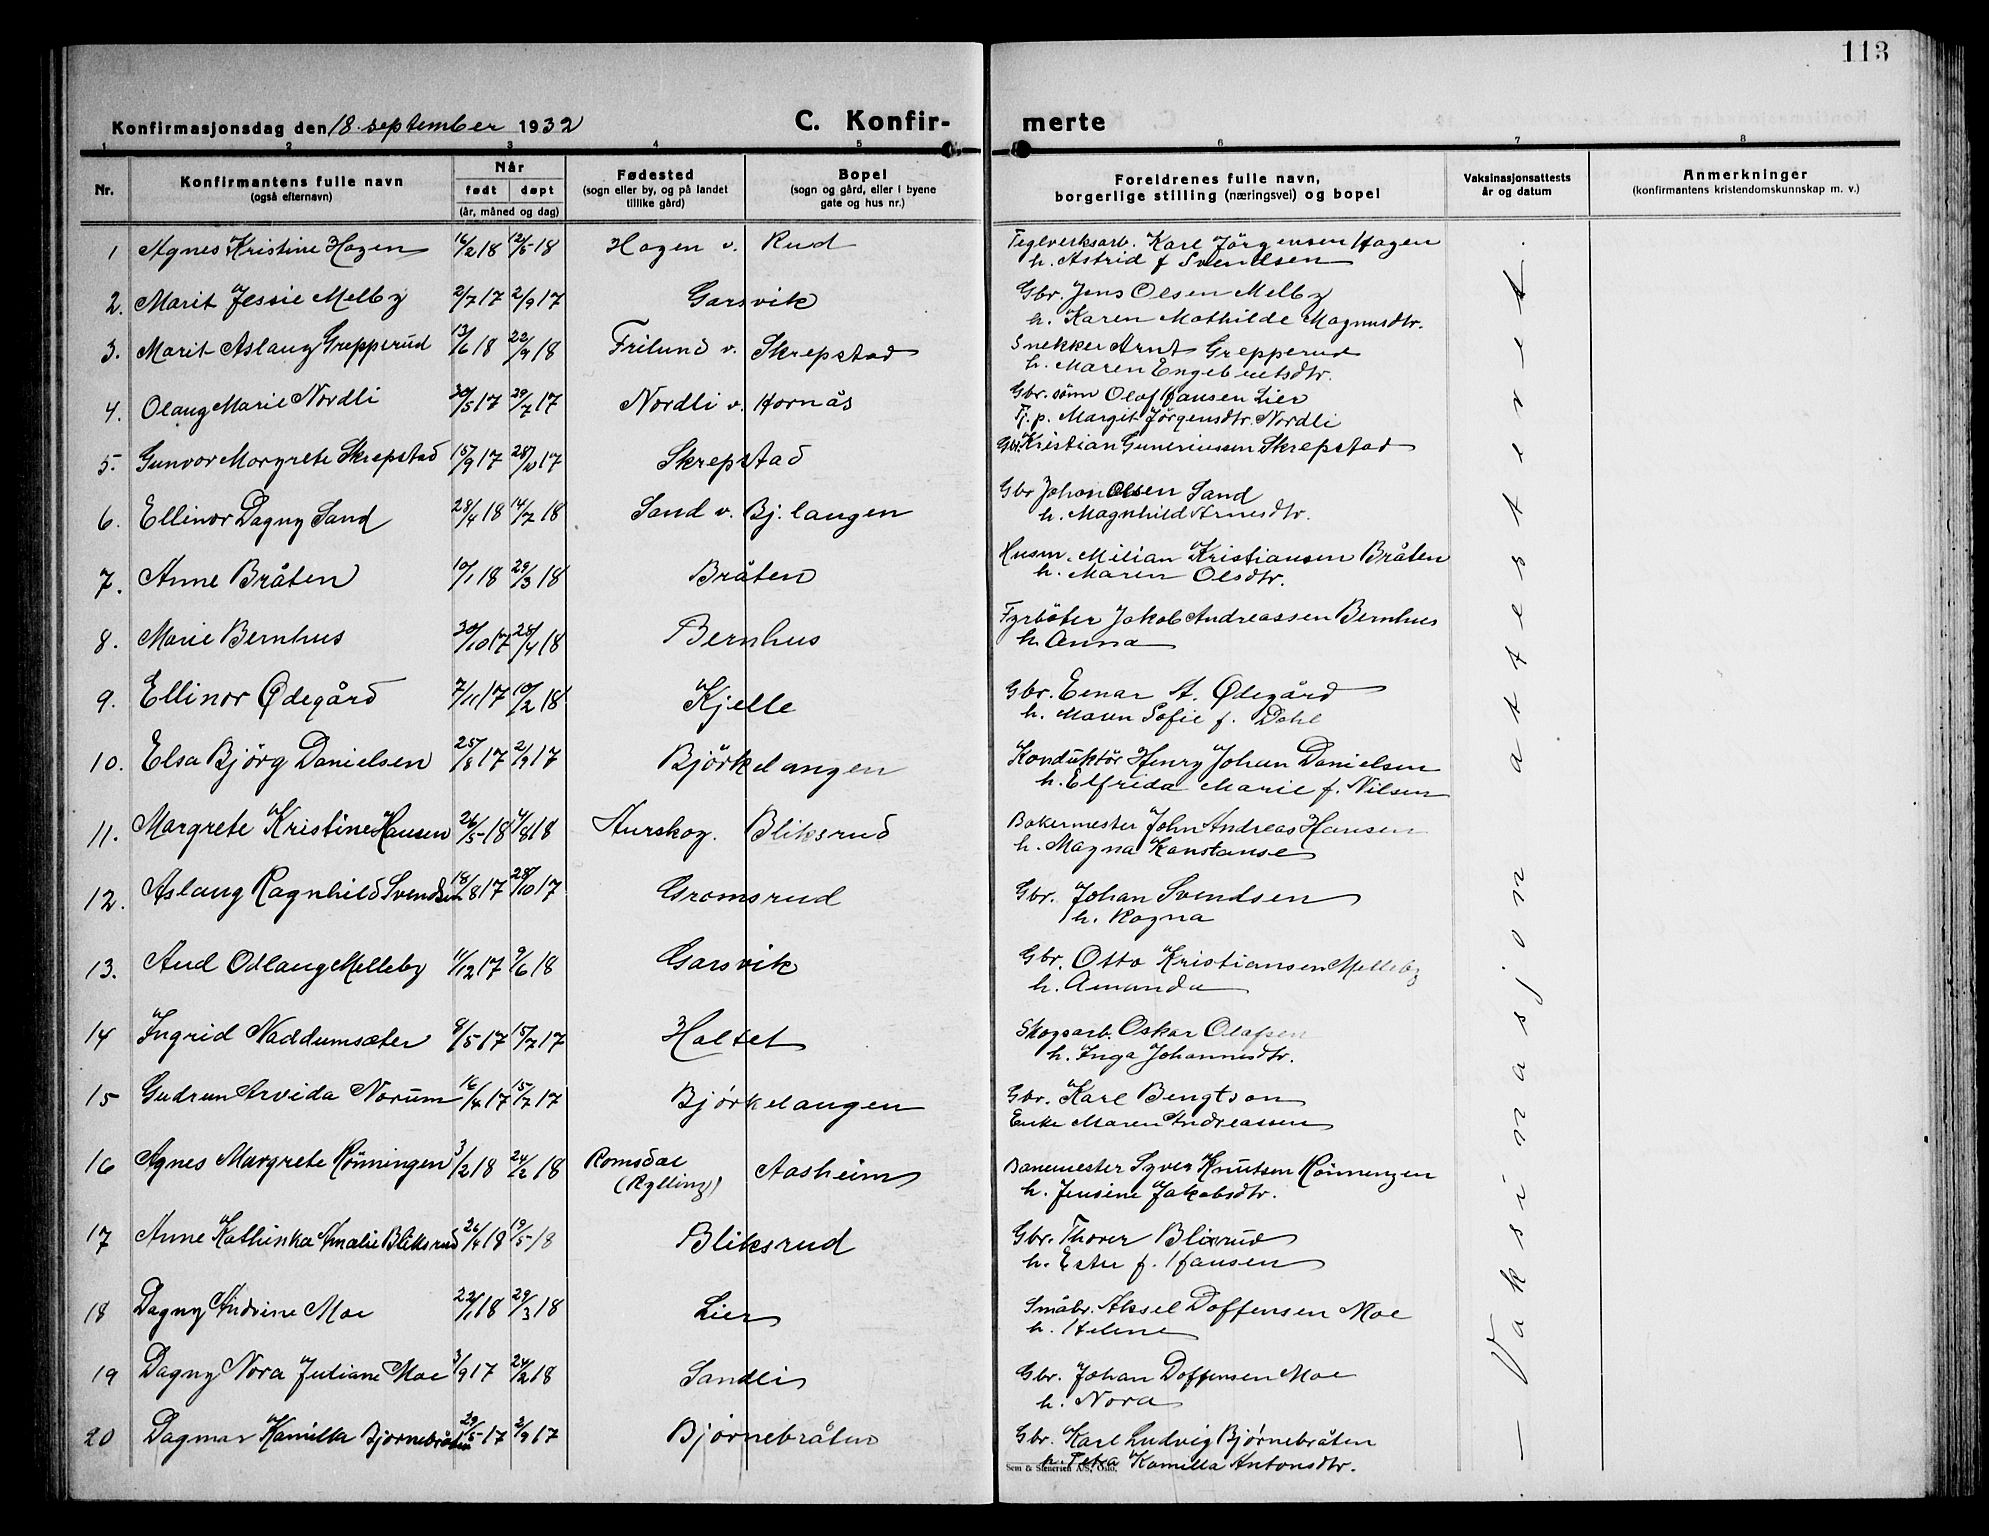 113
Konfirmasjonsdag den 18. september 1932 C. Konfir-merte
1 2 3 4 5 6 7 8
Nr. Konfirmantens fulle navn (også efternavn) Når født døpt (år, måned og dag) Fødested (sogn eller by, og på landet tillike gård) Bopel (sogn og gård, eller i byene gate og hus nr.) Foreldrenes fulle navn, borgerlige stilling (næringsvei) og bopel Vaksinasjonsattests år og datum Anmerkninger (konfirmantens kristendomskunnskap m. v.)
1 Agnes Kristine Hagen 16/2 18 12/5 18 Hagen v. Rud Teglverksarb. Karl Jörgensen Hagen
h. Astrid f Svendsen
2. Marit Jessie Melby 2/7 17 2/9 17 Garsvik Gbr. Jens Olsen Melby
h. Karen Mathilde Magnusdtr.
3. Marit Aslaug Grepperud 13/6 18 22/9 18 Frilund v. Skrepstad Snekker Arnt Grepperud
h. Maren Engebretsdtr.
4. Olaug Marie Nordli 30/5 17 29/7 17 Nordli v. Hornås Gbr. sönn Olaf Hansen Lier
Tj. p. Margit Jörgensdtr. Nordli
5. Gunvor Margrete Skrepstad 15/9 17 28/10 17 Skrepstad Gbr. Kristian Guneriussen Skrepstad
6. Ellinor Dagny Sand 28/4 18 14/7 18 Sand v. Bj.langen Gbr Johan Olsen Sand
h. Magnhild Arnesdtr.
7. Anne Bråten 10/1 18 29/3 18 Bråten Husm. Milian Kristiansen Bråten
h. Maren Olsdtr.
8. Marie Bernhus 30/10 17 28/4 18 Bernhus Fyrböter Jakob Andreassen Bernhus
h. Anna
9. Ellinor Ødegård 7/11 17 10/2 18 Kjelle Gbr. Einar A. Ødegård
h. Maren Sofie f. Dahl
10. Elsa Björg Danielsen 25/8 17 2/9 17 Björkelangen Konduktör Henry Johan Danielsen
h. Elfrida Marie f. Nilsen
11. Margrete Kristine Hansen 26/5 18 4/8 18 Aurskog. Bliksrud Bakermester John Andreas Hansen
h. Magna Konstanse
12. Aslaug Ragnhild Svendsen 18/8 17 28/10 17 Gromsrud Gbr. Johan Svendsen
h. Ragna
13. Aud Odlaug Melleby 11/12 17 9/6 18 Garsvik Gbr. Otto Kristiansen Melleby
h. Amanda
14 Ingrid Naddumsæter 8/5 17 15/7 17 Haltet Skogsarb. Oskar Olafsen
h. Inga Johannesdtr.
15 Gudrun Arvida Norum 16/4 17 15/7 17 Bjørkelangen Gbr. Karl Bengtson
Enke Maren Andreassen
16 Agnes Margrete Rönningen 3/2 18 24/2 18 Romsdal Aasheim Banemester Syver Knutsen Rönningen
h. Jensine Jakobsdtr.
17 Anne Kathinka Amalie Bliksrud 26/4 18 19/5 18 Bliksrud Gbr. Thorer Blixrud
h. Ester f. Hansen
18 Dagny Andrine Moe 22/1 18 29/3 18 Lier Småbr. Aksel Doffensen Moe
h. Helene
19 Dagny Nora Juliane Moe 3/9 17 24/2 18 Sandli Gbr. Johan Doffensen Moe
h. Nora
20 Dagmar Kamilla Bjørnebråten 29/5 17 2/9 17 Bjørnebråten Gbr. Karl Ludvig Bjørnebråten
h. Petra Kamilla Antonsdtr.
Sem & Stenersen A/S, Oslo.
— Vaksinasjon attestert.